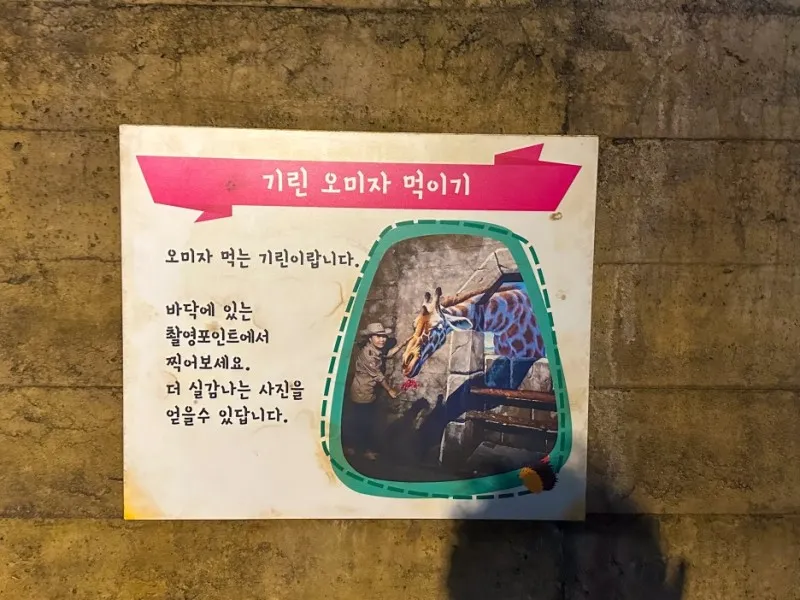 기린 오미자 먹이기
오미자 먹는 기린이랍니다.
바닥에 있는
촬영포인트에서
찍어보세요.
더 실감나는 사진을
얻을수 있답니다.